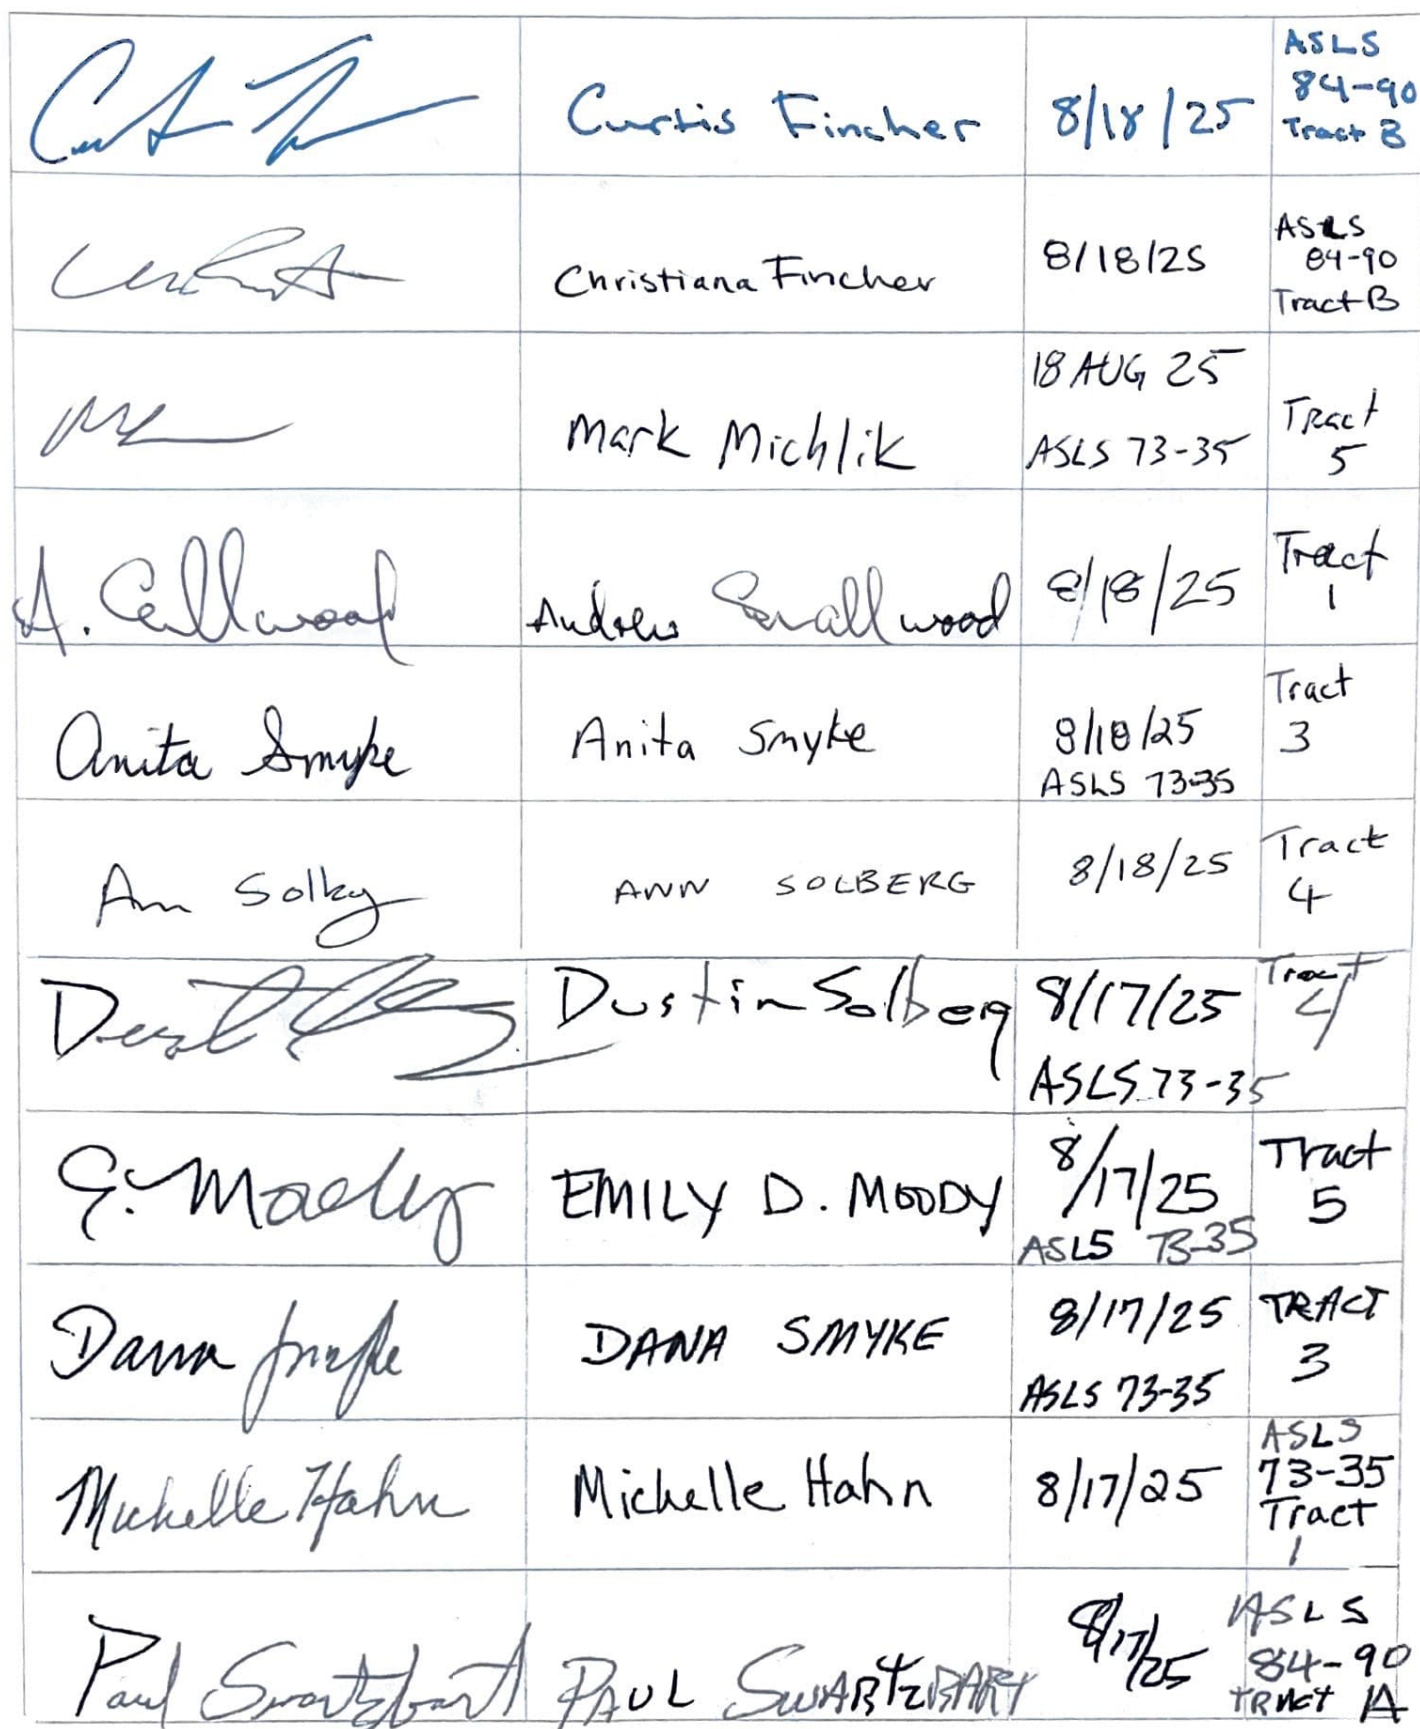 Curtis Fincher 8/18/25 ASLS
84-90
Tract B
Christiana Fincher 8/18/25 ASLS
84-90
Tract B
18 AUG 25
Mark Michlik ASLS 73-35 Tract
5
A. Smallwood Andrew Smallwood 8/18/25 Tract
1
Anita Smyke Anita Smyke 8/18/25 Tract
3
ASLS 73-35
Ann Solbg ANN SOLBERG 8/18/25 Tract
4
Dustin Solberg 8/17/25 Tract
4
ASLS 73-35
E. Moody EMILY D. MOODY 8/17/25 Tract
5
ASLS 73-35
Dana Smyke DANA SMYKE 8/17/25 TRACT
3
ASLS 73-35
Michelle Hahn Michelle Hahn 8/17/25 ASLS
73-35
Tract
1
Paul Swartzbart PAUL SWARTZBART 8/17/25 ASLS
84-90
TRACT 1A